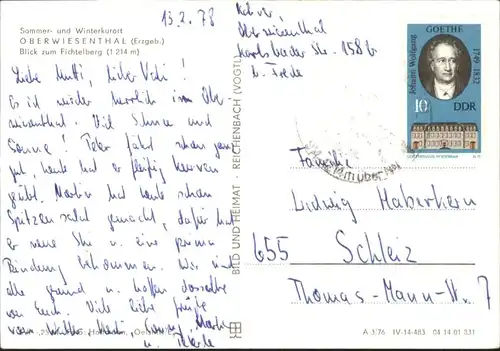 13.2.78
Sommer- und Winterkurort
OBERWIESENTHAL (Erzgeb.)
Blick zum Fichtelberg (1 214 m)
Liebe Mutti, lieber Vati!
Es ist wieder herrlich in Ober-
wiesenthal. Viel Schnee und
Sonne! Peter fährt schon ganz
gut, heute hat er fleißig Kurven
geübt. Martin hat heute schon
Spitzen salat gemacht, dafür hat
er neue Ski u. eine prima
Bindung bekommen. Wir sind
alle gesund u. hoffen dasselbe
von Euch. Viele liebe Grüße
vom Martin
u.
BILD UND HEIMAT · REICHENBACH (VOGTL)
Oberwiesenthal
Karlsbader Str. 158b
b.
Johann Wolfgang
GOETHE
1749-1832
10
DDR
GOETHEHAUS WEIMAR
Familie
Ludwig Haberkern
655 Schleiz
Thomas-Mann-Str. 7
A 3/76 IV-14-483 04 14 01 331